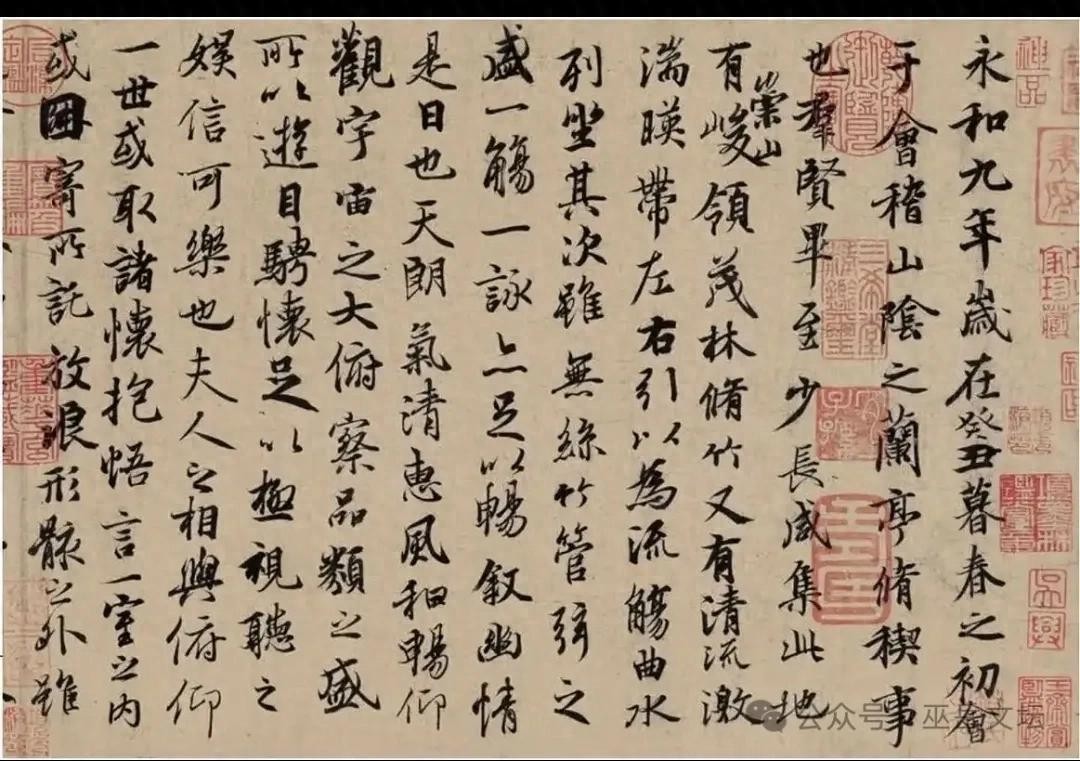 永和九年歲在癸丑暮春之初會
于會稽山陰之蘭亭脩稧事
也羣賢畢至少長咸集此地
有崇山峻領茂林脩竹又有清流激
湍暎帶左右引以為流觴曲水
列坐其次雖無絲竹管弦之
盛一觴一詠亦足以暢叙幽情
是日也天朗氣清惠風和暢仰
觀宇宙之大俯察品類之盛
所以遊目騁懷足以極視聽之
娛信可樂也夫人之相與俯仰
一世或取諸懷抱悟言一室之內
或因寄所託放浪形骸之外雖
神品
三希堂精鑑璽
家珍藏
吳興
公众号 巫 文坛